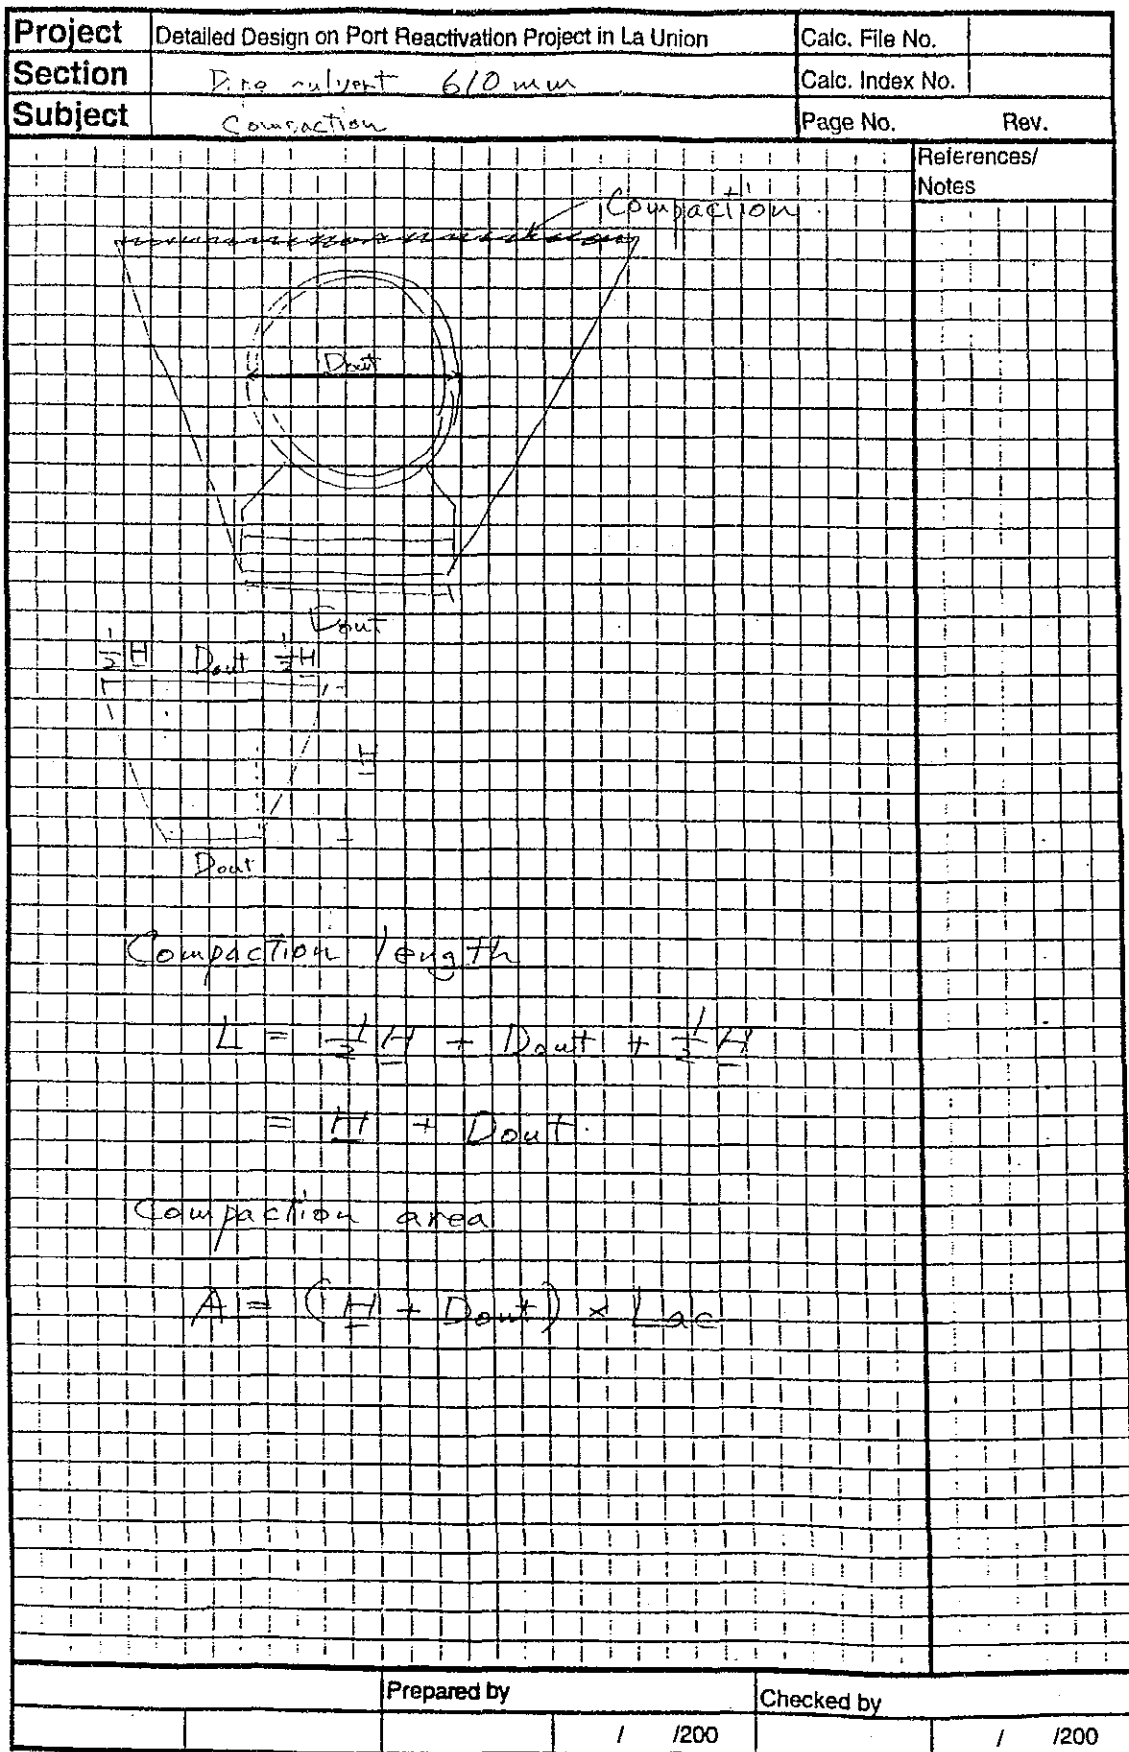 Project Detailed Design on Port Reactivation Project in La Union Calc. File No.
Section Pipe culvert 610 mm Calc. Index No.
Subject Compaction Page No. Rev.
References/
Notes
Compaction
Dout
Dout
1/2 H Dout 1/2 H
H
Dout
Compaction length
L = 1/2 H + Dout + 1/2 H
= H + Dout
Compaction area
A = (H + Dout) × Lac
Prepared by Checked by
/ /200 / /200